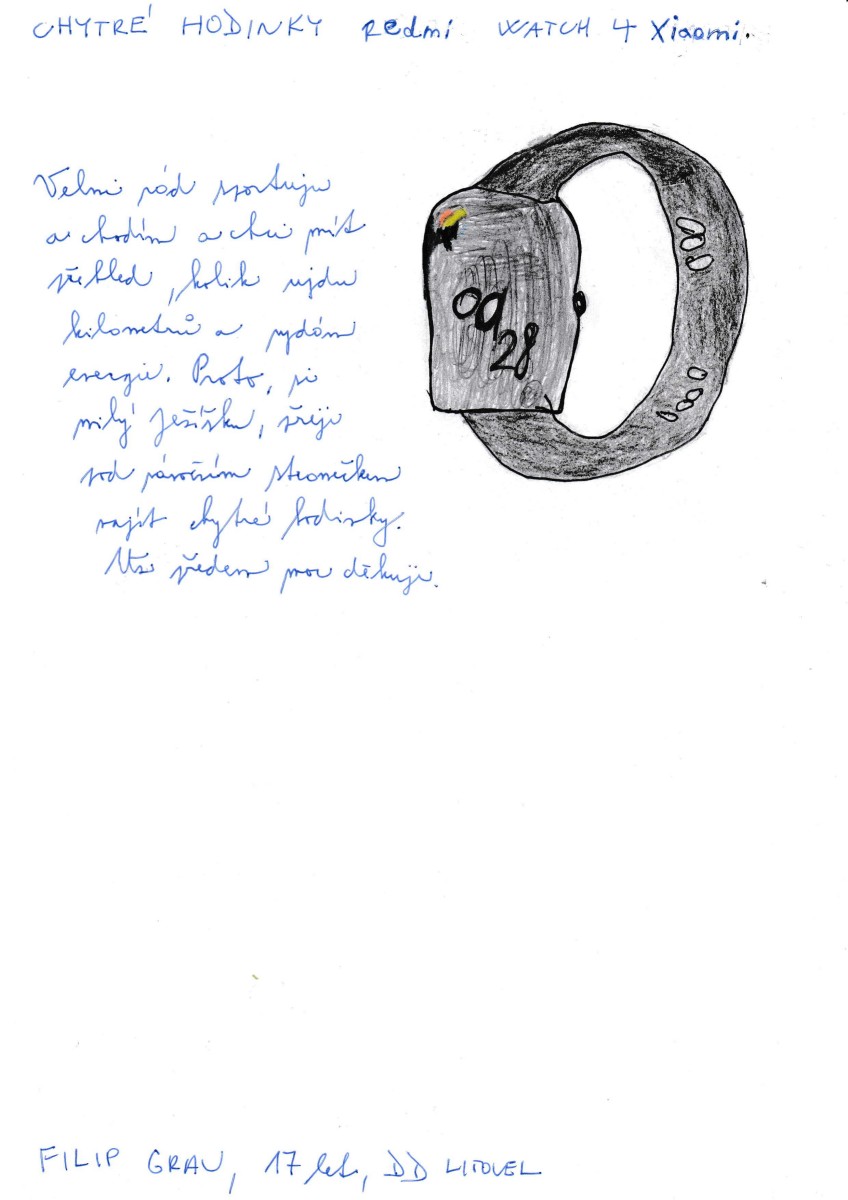 CHYTRÉ HODINKY Redmi WATCH 4 Xiaomi.
Velmi rád sportuju
a chodím a chci mít
přehled, kolik ujdu
kilometrů a vydám
energie. Proto, si
milý Ježíšku, přeji
pod vánočním stromečkem
najít chytré hodinky.
Už předem moc děkuji.
09
28
FILIP GRAU, 17 let, DD LITOVEL